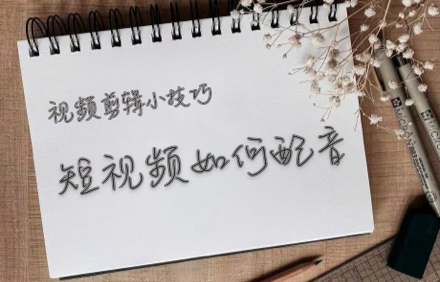 视频剪辑小技巧
短视频如何配音